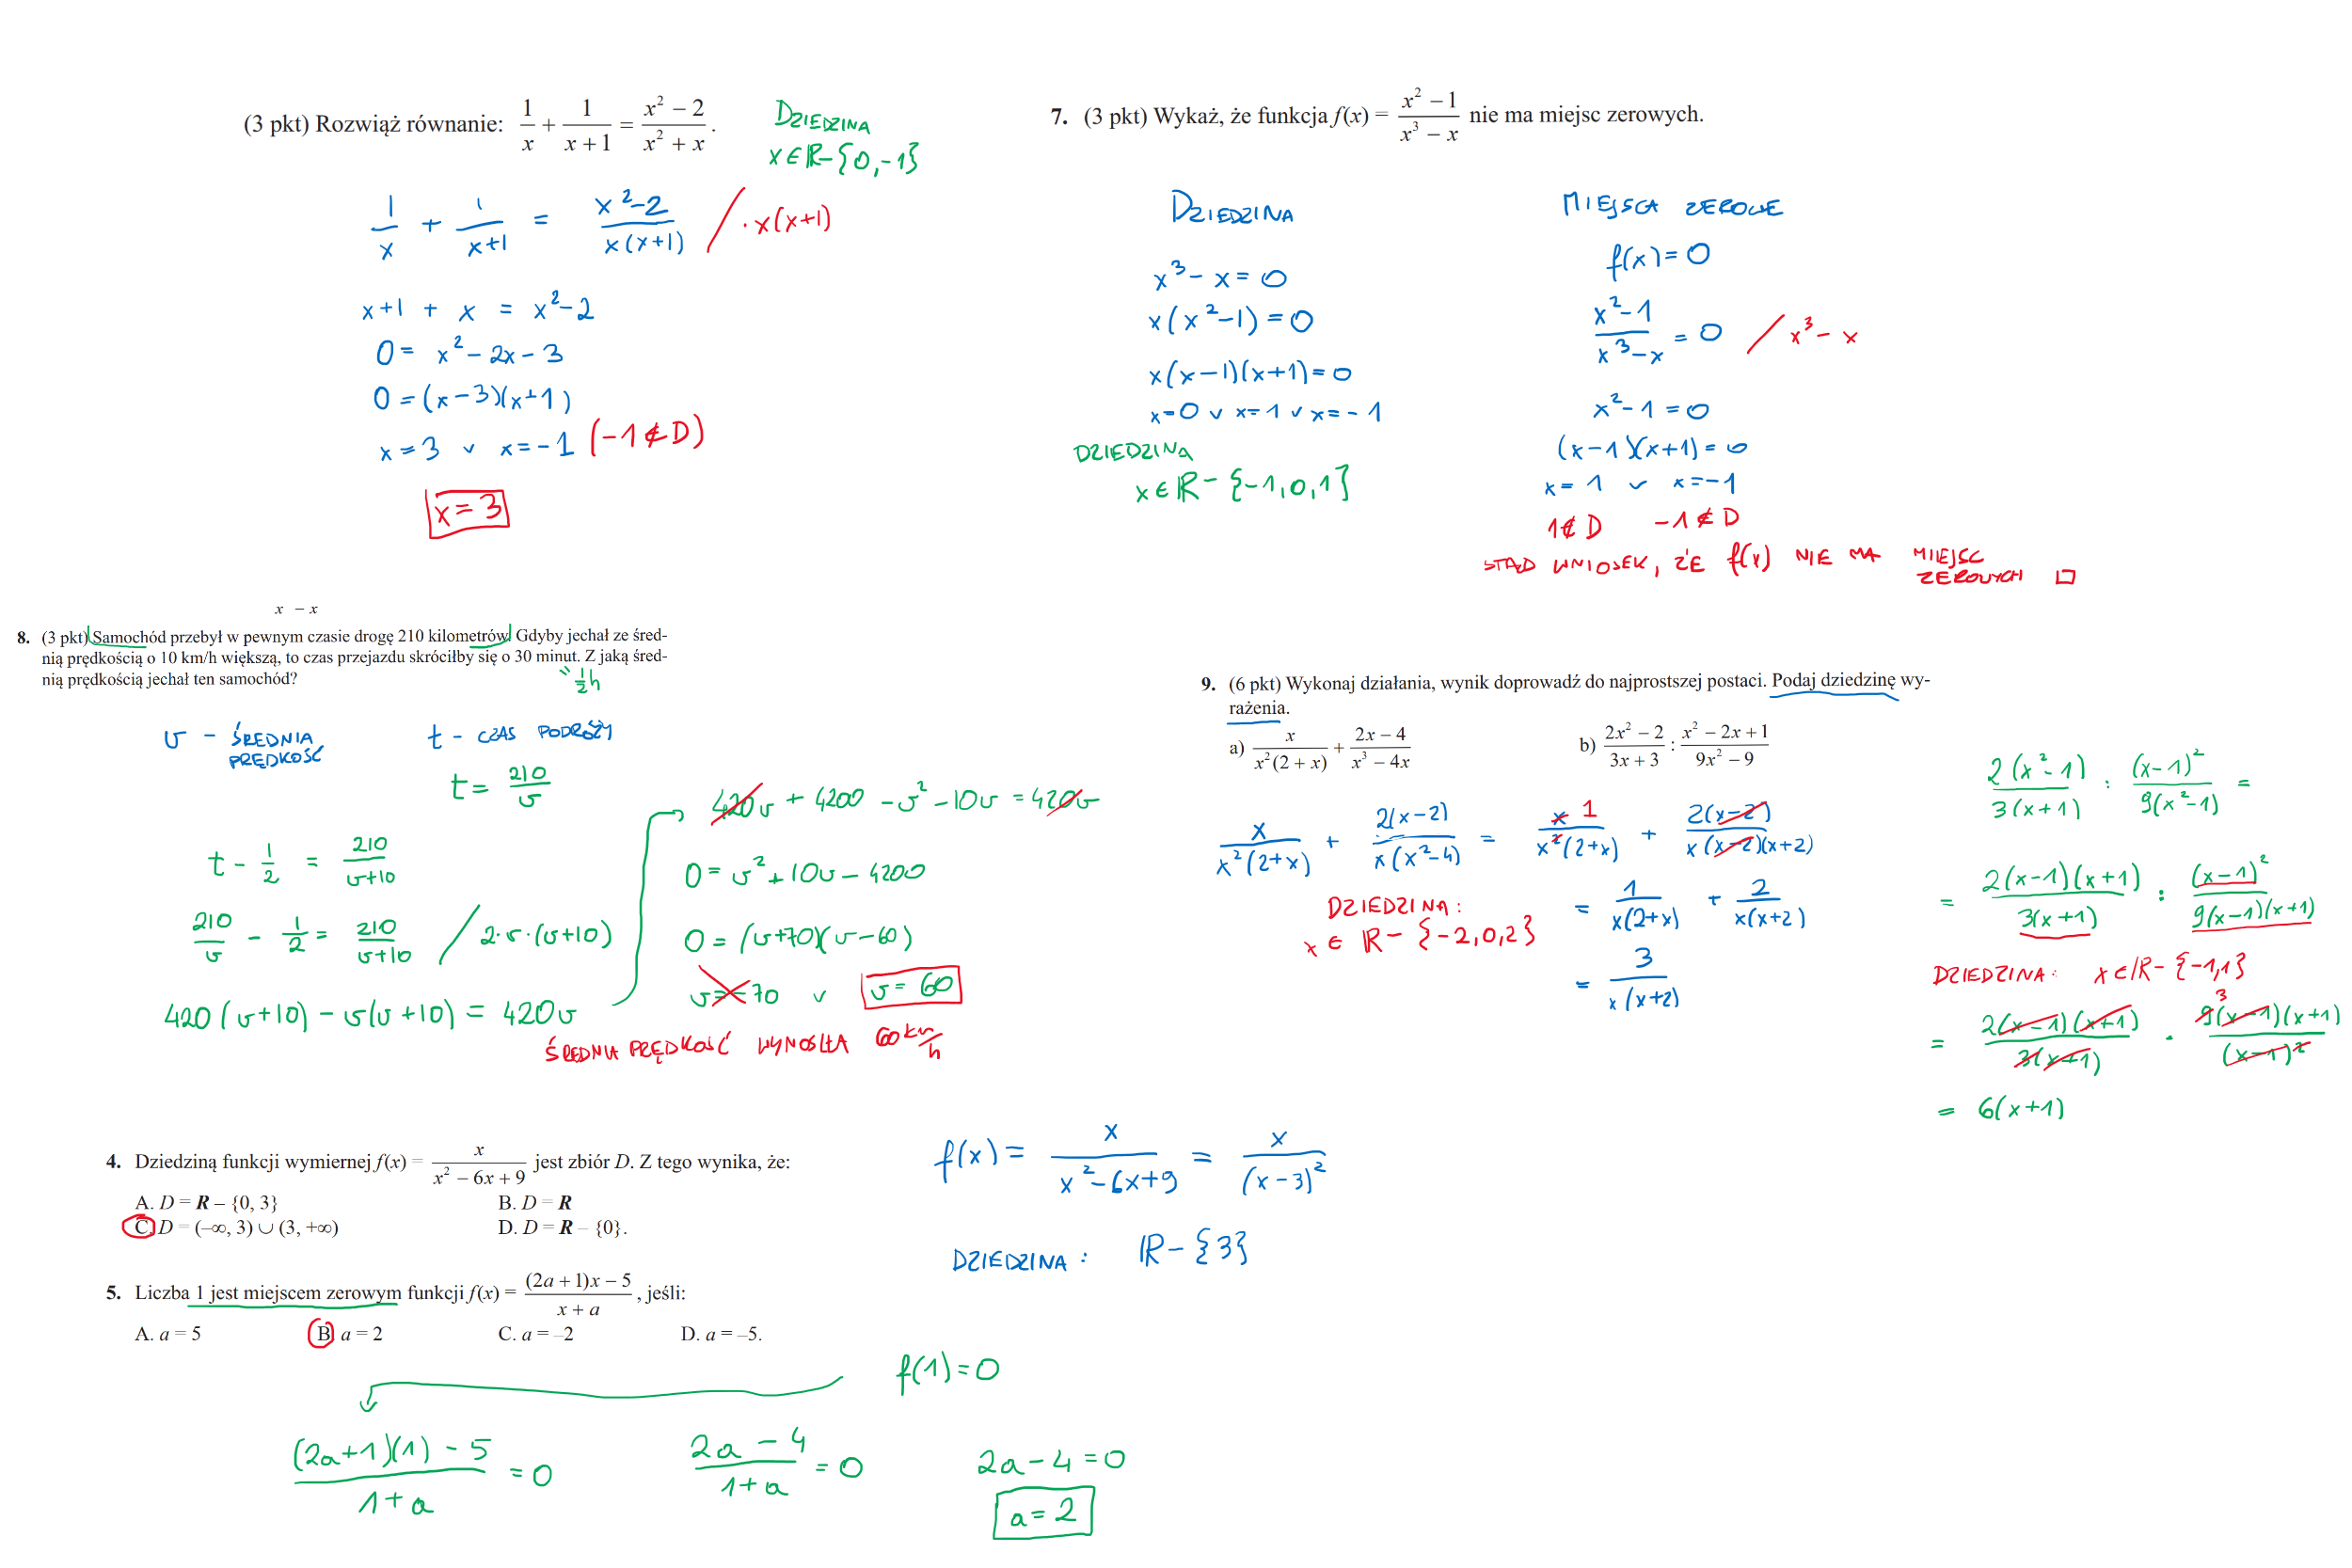 (3 pkt) Rozwiąż równanie: 1/x + 1/(x+1) = (x² − 2)/(x² + x).
DZIEDZINA
x∈ℝ−{0,−1}
1/x + 1/(x+1) = (x²−2)/(x(x+1)) / ·x(x+1)
x+1 + x = x²−2
0 = x²−2x−3
0 = (x−3)(x+1)
x=3 ∨ x=−1 (−1∉D)
x=3
7. (3 pkt) Wykaż, że funkcja f(x) = (x² − 1)/(x³ − x) nie ma miejsc zerowych.
DZIEDZINA
x³−x=0
x(x²−1)=0
x(x−1)(x+1)=0
x=0 ∨ x=1 ∨ x=−1
DZIEDZINA
x∈ℝ−{−1,0,1}
MIEJSCA ZEROWE
f(x)=0
(x²−1)/(x³−x) = 0 / x³−x
x²−1=0
(x−1)(x+1)=0
x=1 ∨ x=−1
1∉D −1∉D
STĄD WNIOSEK, ŻE f(x) NIE MA MIEJSC
ZEROWYCH □
x − x
8. (3 pkt) Samochód przebył w pewnym czasie drogę 210 kilometrów. Gdyby jechał ze śred-
nią prędkością o 10 km/h większą, to czas przejazdu skróciłby się o 30 minut. Z jaką śred-
nią prędkością jechał ten samochód?
1/2 h
v − ŚREDNIA
PRĘDKOŚĆ
t − CZAS PODRÓŻY
t = 210/v
t − 1/2 = 210/(v+10)
210/v − 1/2 = 210/(v+10) / 2·v·(v+10)
420(v+10) − v(v+10) = 420v
420v + 4200 − v² − 10v = 420v
0 = v² + 10v − 4200
0 = (v+70)(v−60)
v=−70 ∨ v=60
ŚREDNIA PRĘDKOŚĆ WYNOSIŁA 60 km/h
9. (6 pkt) Wykonaj działania, wynik doprowadź do najprostszej postaci. Podaj dziedzinę wy-
rażenia.
a) x/(x²(2 + x)) + (2x − 4)/(x³ − 4x)
b) (2x² − 2)/(3x + 3) : (x² − 2x + 1)/(9x² − 9)
x/(x²(2+x)) + 2(x−2)/(x(x²−4)) = x 1/(x²(2+x)) + 2(x−2)/(x(x−2)(x+2))
DZIEDZINA:
x ∈ ℝ−{−2,0,2}
= 1/(x(2+x)) + 2/(x(x+2))
= 3/(x(x+2))
2(x²−1)/(3(x+1)) : (x−1)²/(9(x²−1)) =
= 2(x−1)(x+1)/(3(x+1)) : (x−1)²/(9(x−1)(x+1))
DZIEDZINA: x∈ℝ−{−1,1}
= 2(x−1)(x+1)/(3(x+1)) · 3 9(x−1)(x+1)/(x−1)²
= 6(x+1)
4. Dziedziną funkcji wymiernej f(x) = x/(x² − 6x + 9) jest zbiór D. Z tego wynika, że:
A. D = R – {0, 3} B. D = R
C. D = (–∞, 3) ∪ (3, +∞) D. D = R – {0}.
f(x) = x/(x²−6x+9) = x/(x−3)²
DZIEDZINA: ℝ−{3}
5. Liczba 1 jest miejscem zerowym funkcji f(x) = ((2a + 1)x − 5)/(x + a), jeśli:
A. a = 5 B. a = 2 C. a = –2 D. a = –5.
f(1)=0
((2a+1)(1) − 5)/(1+a) = 0
(2a − 4)/(1+a) = 0
2a−4=0
a=2